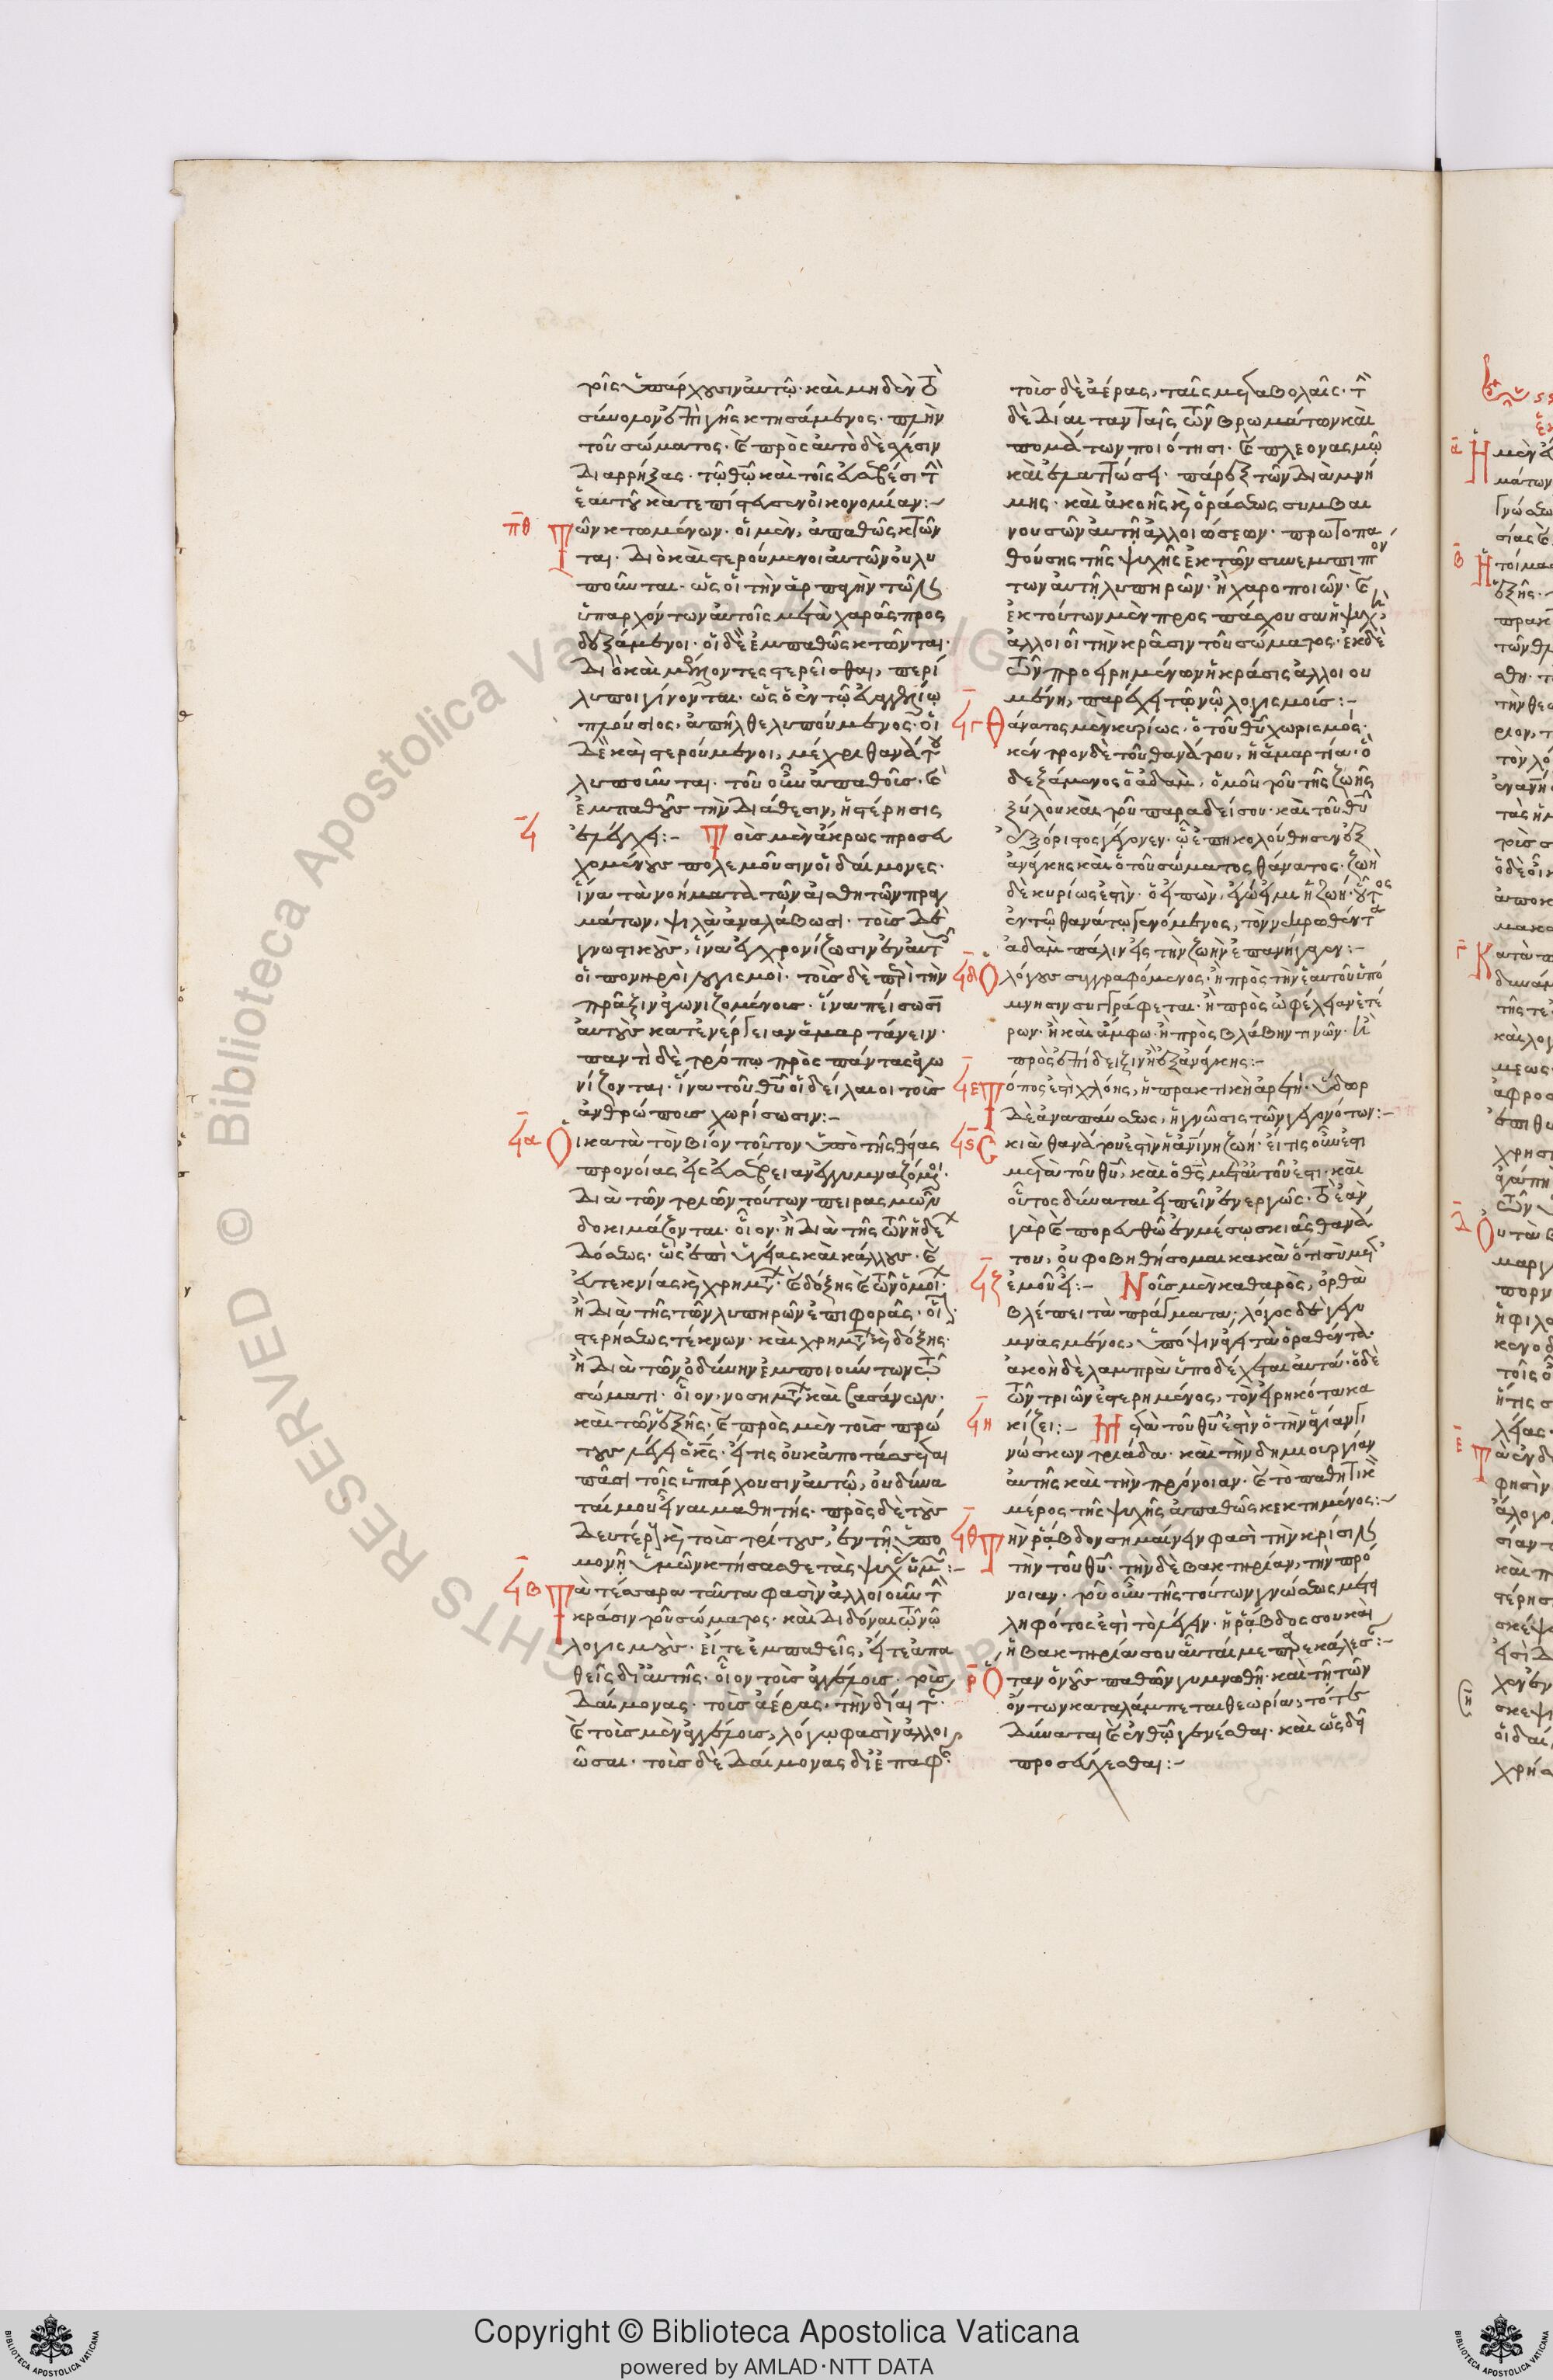 ρὶς ὑπάρχουσιν αὐτῷ· καὶ μηδὲν τὸ
σύνολον ἐπὶ γῆς κτησάμενος· πλὴν
τοῦ σώματος· καὶ πρὸς αὐτὸ δὲ σχέσιν
διαρρήξας· τῷ θῷ καὶ τοῖς εὐσεβέσι τὴν
ἑαυτοῦ κατεπίστευσεν οἰκονομίαν:-
πθ Τῶν κτωμένων· οἱ μὲν, ἀπαθῶς κτῶν
ται· διὸ καὶ στερούμενοι αὐτῶν οὐ λυ
ποῦνται· ὡς οἱ τὴν ἁρπαγὴν τῶν
ὑπαρχόντων αὐτοῖς μετὰ χαρᾶς προς
δεξάμενοι· οἱ δὲ ἐμπαθῶς κτῶνται·
διὸ καὶ μέλλοντες στερεῖσθαι, περί
λυποι γίνονται· ὡς ὁ ἐν τῷ εὐαγγελίῳ
πλούσιος, ἀπῆλθε λυπούμενος· οἱ
δὲ καὶ στερούμενοι, μέχρι θανάτου
λυποῦνται· τοῦ οὖν ἀπαθοῦς· καὶ
ἐμπαθοῦς τὴν διάθεσιν, ἡ στέρησις
ϟ ἐλέγχει:- Τοὺς μὲν ἄκρως προσευ
χομένους πολεμοῦσιν οἱ δαίμονες·
ἵνα τὰ νοήματα τῶν αἰσθητῶν πραγ
μάτων, ψιλὰ ἀναλάβωσι· τοὺς δὲ
γνωστικοὺς, ἵνα ἐγχρονίζωσιν ἐν αὐτοῖς
οἱ πονηροὶ λογισμοί· τοὺς δὲ περὶ τὴν
πρᾶξιν ἀγωνιζομένους· ἵνα πείσωσιν
αὐτοὺς κατ' ἐνέργειαν ἁμαρτάνειν·
παντὶ δὲ τρόπῳ πρὸς πάντας ἀγω
νίζονται· ἵνα τοῦ θῦ οἱ δείλαιοι τοὺς
ἀνθρώπους χωρίσωσιν:-
ϟα Οἱ κατὰ τὸν βίον τοῦτον ὑπὸ τῆς θείας
προνοίας εἰς εὐσέβειαν ἐγγυμναζόμενοι·
διὰ τῶν τριῶν τούτων πειρασμῶν
δοκιμάζονται· οἷον· ἢ διὰ τῆς τῶν ἡδέων
δόσεως· ὡς ἐπὶ ὑγείας καὶ κάλλους· καὶ
εὐτεκνίας καὶ χρημάτων· καὶ δόξης καὶ τῶν ὁμοίων·
ἢ διὰ τῆς τῶν λυπηρῶν ἐπιφορᾶς· οἷον·
στερήσεως τέκνων· καὶ χρημάτων καὶ δόξης·
ἢ διὰ τῶν ὀδύνην ἐμποιούντων τῷ
σώματι· οἷον, νοσημάτων καὶ βασάνων·
καὶ τῶν ἑξῆς· καὶ πρὸς μὲν τοὺς πρώ
τους λέγει ὁ κς· εἴ τις οὐκ ἀποτάσσεται
πᾶσι τοῖς ὑπάρχουσιν αὐτῷ, οὐ δύνα
ταί μου εἶναι μαθητής· πρὸς δὲ τοὺς
δευτέρους καὶ τοὺς τρίτους, ἐν τῇ ὑπο
μονῇ ὑμῶν κτήσασθε τὰς ψυχὰς ὑμῶν:-
ϟβ Τὰ τέσσαρα ταῦτα φασὶν ἀλλοιοῦν τὴν
κρᾶσιν τοῦ σώματος· καὶ διδόναι τῷ νῷ
λογισμούς· εἴτε ἐμπαθεῖς, εἴτε ἀπα
θεῖς δι' αὐτῆς· οἷον τοὺς ἀγγέλους· τοὺς
δαίμονας· τοὺς ἀέρας· τὴν δίαιταν·
καὶ τοὺς μὲν ἀγγέλους, λόγῳ φασὶν ἀλλοι
ῶσαι· τοὺς δὲ δαίμονας δι' ἐπαφῆς·
τοὺς δὲ ἀέρας, ταῖς μεταβολαῖς· τὴν
δὲ δίαιταν ταῖς τῶν βρωμάτων καὶ
πομάτων ποιότησι· καὶ πλεονασμῷ
καὶ ἐλαττώσει· πάρεξ τῶν διὰ μνή
μης· καὶ ἀκοῆς καὶ ὁράσεως συμβαι
νουσῶν αὐτῇ ἀλλοιώσεων· πρωτοπα
θούσης τῆς ψυχῆς ἐκ τῶν συνεμπιπτόν
των αὐτῇ λυπηρῶν· ἢ χαροποιῶν· καὶ
ἐκ τούτων μὲν προσπάσχουσα ἡ ψυχὴ
ἀλλοιοῖ τὴν κρᾶσιν τοῦ σώματος· ἐκ δὲ
τῶν προειρημένων ἡ κρᾶσις ἀλλοιου
μένη, παρέχει τῷ νῷ λογισμούς:-
ϟγ Θάνατος μὲν κυρίως, ὁ τοῦ θῦ χωρισμός·
κέντρον δὲ τοῦ θανάτου, ἡ ἁμαρτία· ὃ
δεξάμενος ὁ ἀδὰμ, ὁμοῦ τοῦ τῆς ζωῆς
ξύλου καὶ τοῦ παραδείσου· καὶ τοῦ θῦ
ἐξόριστος γέγονεν· ᾧ ἐπηκολούθησεν ἐξ
ἀνάγκης καὶ ὁ τοῦ σώματος θάνατος· ζωὴ
δὲ κυρίως ἐστὶν· ὁ εἰπὼν, ἐγώ εἰμι ἡ ζωή· οὗτος
ἐν τῷ θανάτῳ γενόμενος, τὸν νεκρωθέντα
ἀδὰμ πάλιν εἰς τὴν ζωὴν ἐπανήγαγεν:-
ϟδ Ὁ λόγους συγγραφόμενος· ἢ πρὸς τὴν ἑαυτοῦ ὑπό
μνησιν συγγράφεται· ἢ πρὸς ὠφέλειαν ἑτέ
ρων· ἢ καὶ ἄμφω· ἢ πρὸς βλάβην τινῶν· ἢ
πρὸς ἐπίδειξιν ἢ ἐξ ἀνάγκης:-
ϟε Τόπος ἐστὶ χλόης, ἡ πρακτικὴ ἀρετή· ὕδωρ
δὲ ἀναπαύσεως, ἡ γνῶσις τῶν γεγονότων:-
ϟς Σκιὰ θανάτου ἐστὶν ἡ ἀνίνη ζωή· εἴ τις οὖν ἐστι
μετὰ τοῦ θῦ, καὶ ὁ θς μετ' αὐτοῦ ἐστι· καὶ
οὗτος δύναται εἰπεῖν ἐνεργῶς· τὸ ἐὰν
γὰρ καὶ πορευθῶ ἐν μέσῳ σκιᾶς θανά
του, οὐ φοβηθήσομαι κακὰ ὅτι σὺ μετ'
ϟζ ἐμοῦ εἶ:- Νοῦς μὲν καθαρὸς, ὀρθὰ
βλέπει τὰ πράγματα· λόγος δὲ γεγυ
μνασμένος, ὑπ' ὄψιν ἄγει τὰ ὁραθέντα·
ἀκοὴ δὲ λαμπρὰ ὑποδέχεται αὐτά· ὁ δὲ
τῶν τριῶν ἐστερημένος, τὸν εἰρηκότα κα
ϟη κίζει:- Μετὰ τοῦ θῦ ἐστὶν ὁ τὴν ἁγίαν γι
νώσκων τριάδα· καὶ τὴν δημιουργίαν
αὐτῆς καὶ τὴν πρόνοιαν· καὶ τὸ παθητικὸν
μέρος τῆς ψυχῆς ἀπαθῶς κεκτημένος:-
ϟθ Τὴν ῥάβδον σημαίνειν φασὶ τὴν κρίσιν
τὴν τοῦ θῦ· τὴν δὲ βακτηρίαν, τὴν πρό
νοιαν· τοῦ οὖν τῆς τούτων γνώσεως μετει
ληφότος ἐστὶ τὸ λέγειν· ἡ ῥάβδος σου καὶ
ἡ βακτηρία σου αὗταί με παρεκάλεσαν:-
ρ Ὅταν ὁ νοῦς παθῶν γυμνωθῇ· καὶ τῇ τῶν
ὄντων καταλάμπεται θεωρίᾳ, τότε
δύναται καὶ ἐν θῷ γενέσθαι· καὶ ὡς δεῖ
προσεύχεσθαι:-
Copyright © Biblioteca Apostolica Vaticana
powered by AMLAD·NTT DATA